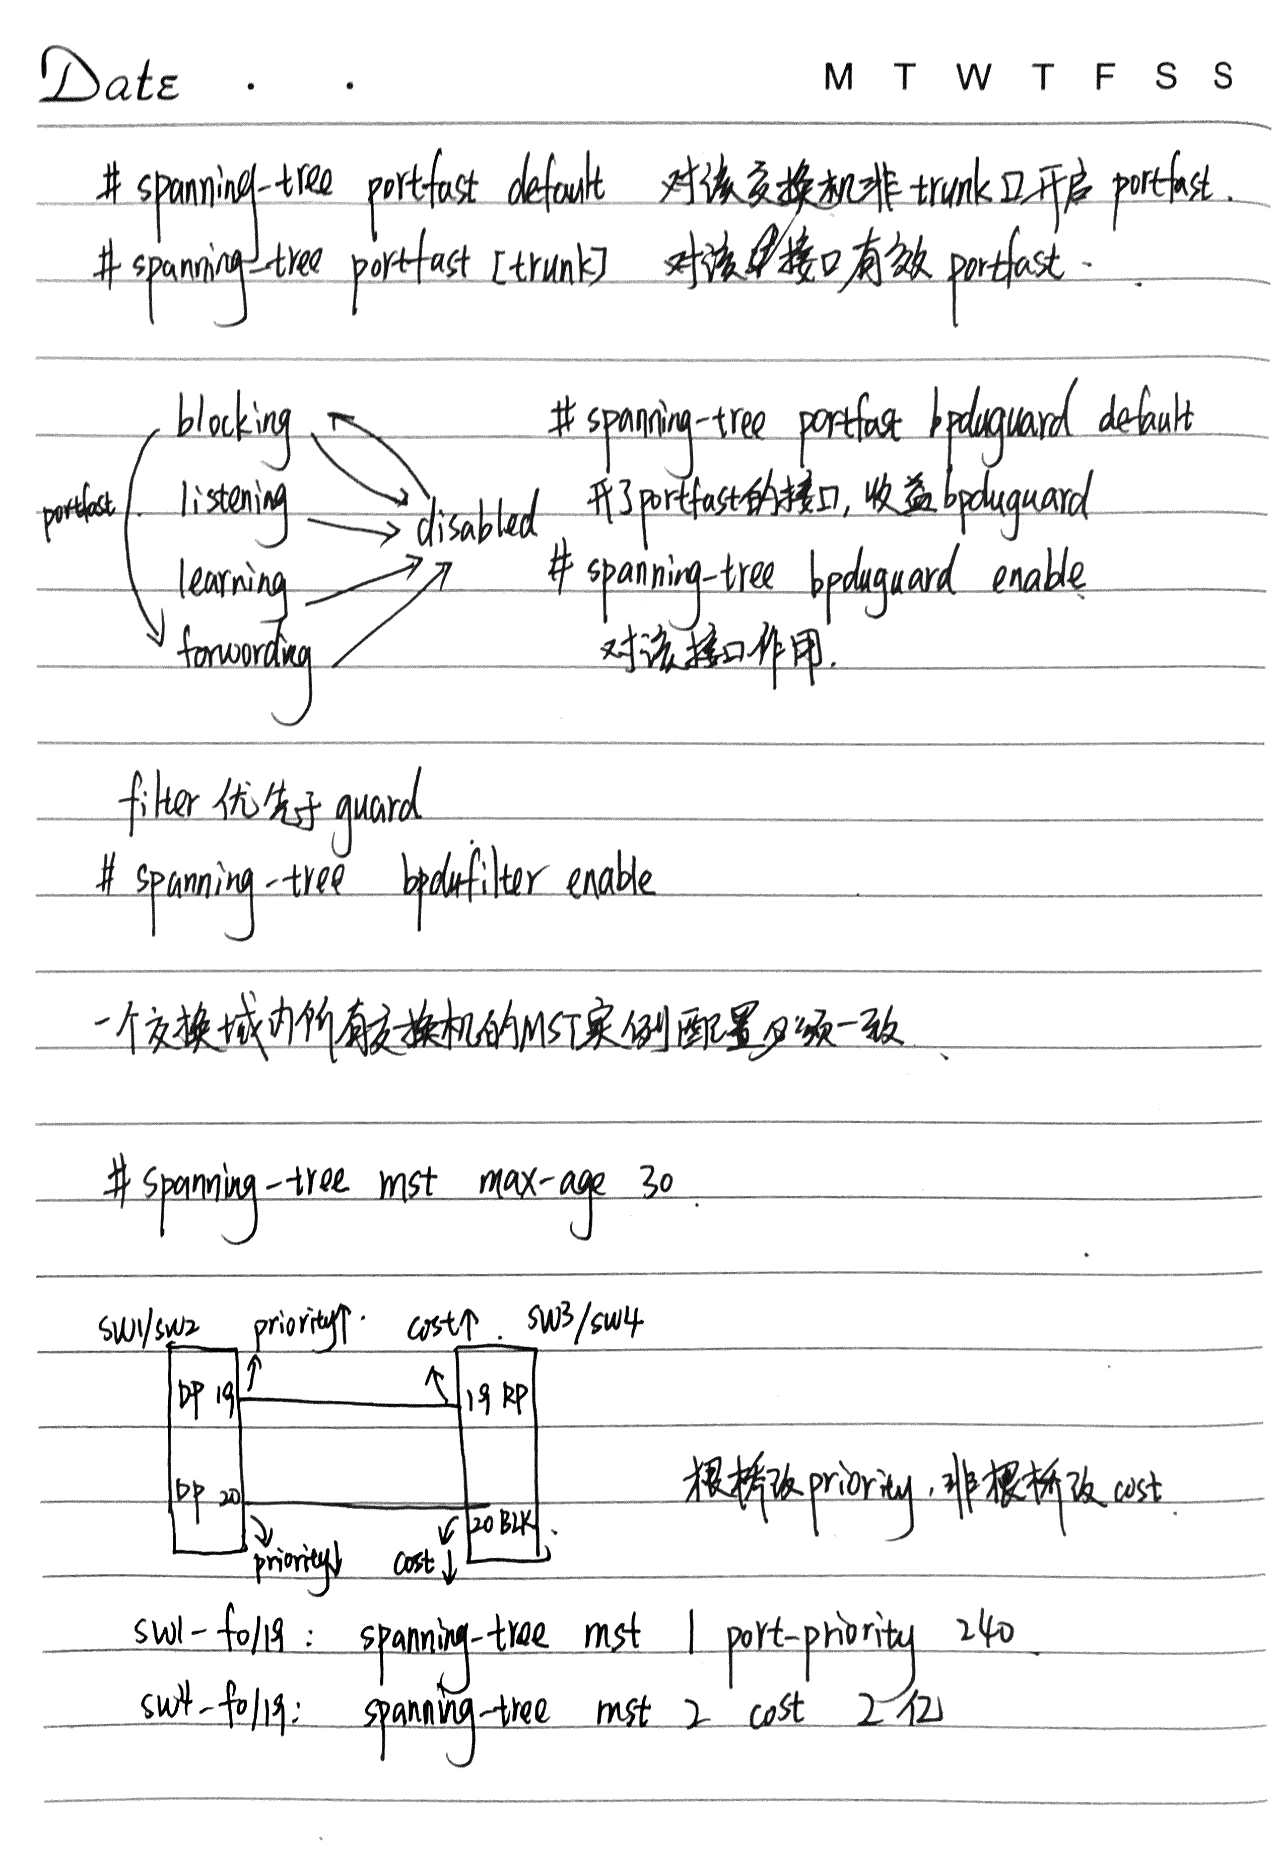 Date . . M T W T F S S
# spanning-tree portfast default 对该交换机非trunk口开启 portfast.
# spanning-tree portfast [trunk] 对该接口有效 portfast.
blocking
listening
learning
forwording
portfast
disabled
# spanning-tree portfast bpduguard default
开了portfast的接口,收益bpduguard
# spanning-tree bpduguard enable
对该接口作用.
filter 优先于 guard
# spanning-tree bpdufilter enable
一个交换域内所有交换机的MST实例配置必须一致.
# spanning-tree mst max-age 30.
SW1/SW2 priority↑. cost↑. SW3/SW4
DP 19 19 RP
DP 20 20 BLK
priority↓ cost↓
根桥改priority,非根桥改cost.
SW1-f0/19: spanning-tree mst 1 port-priority 240
SW4-f0/19: spanning-tree mst 2 cost 2亿